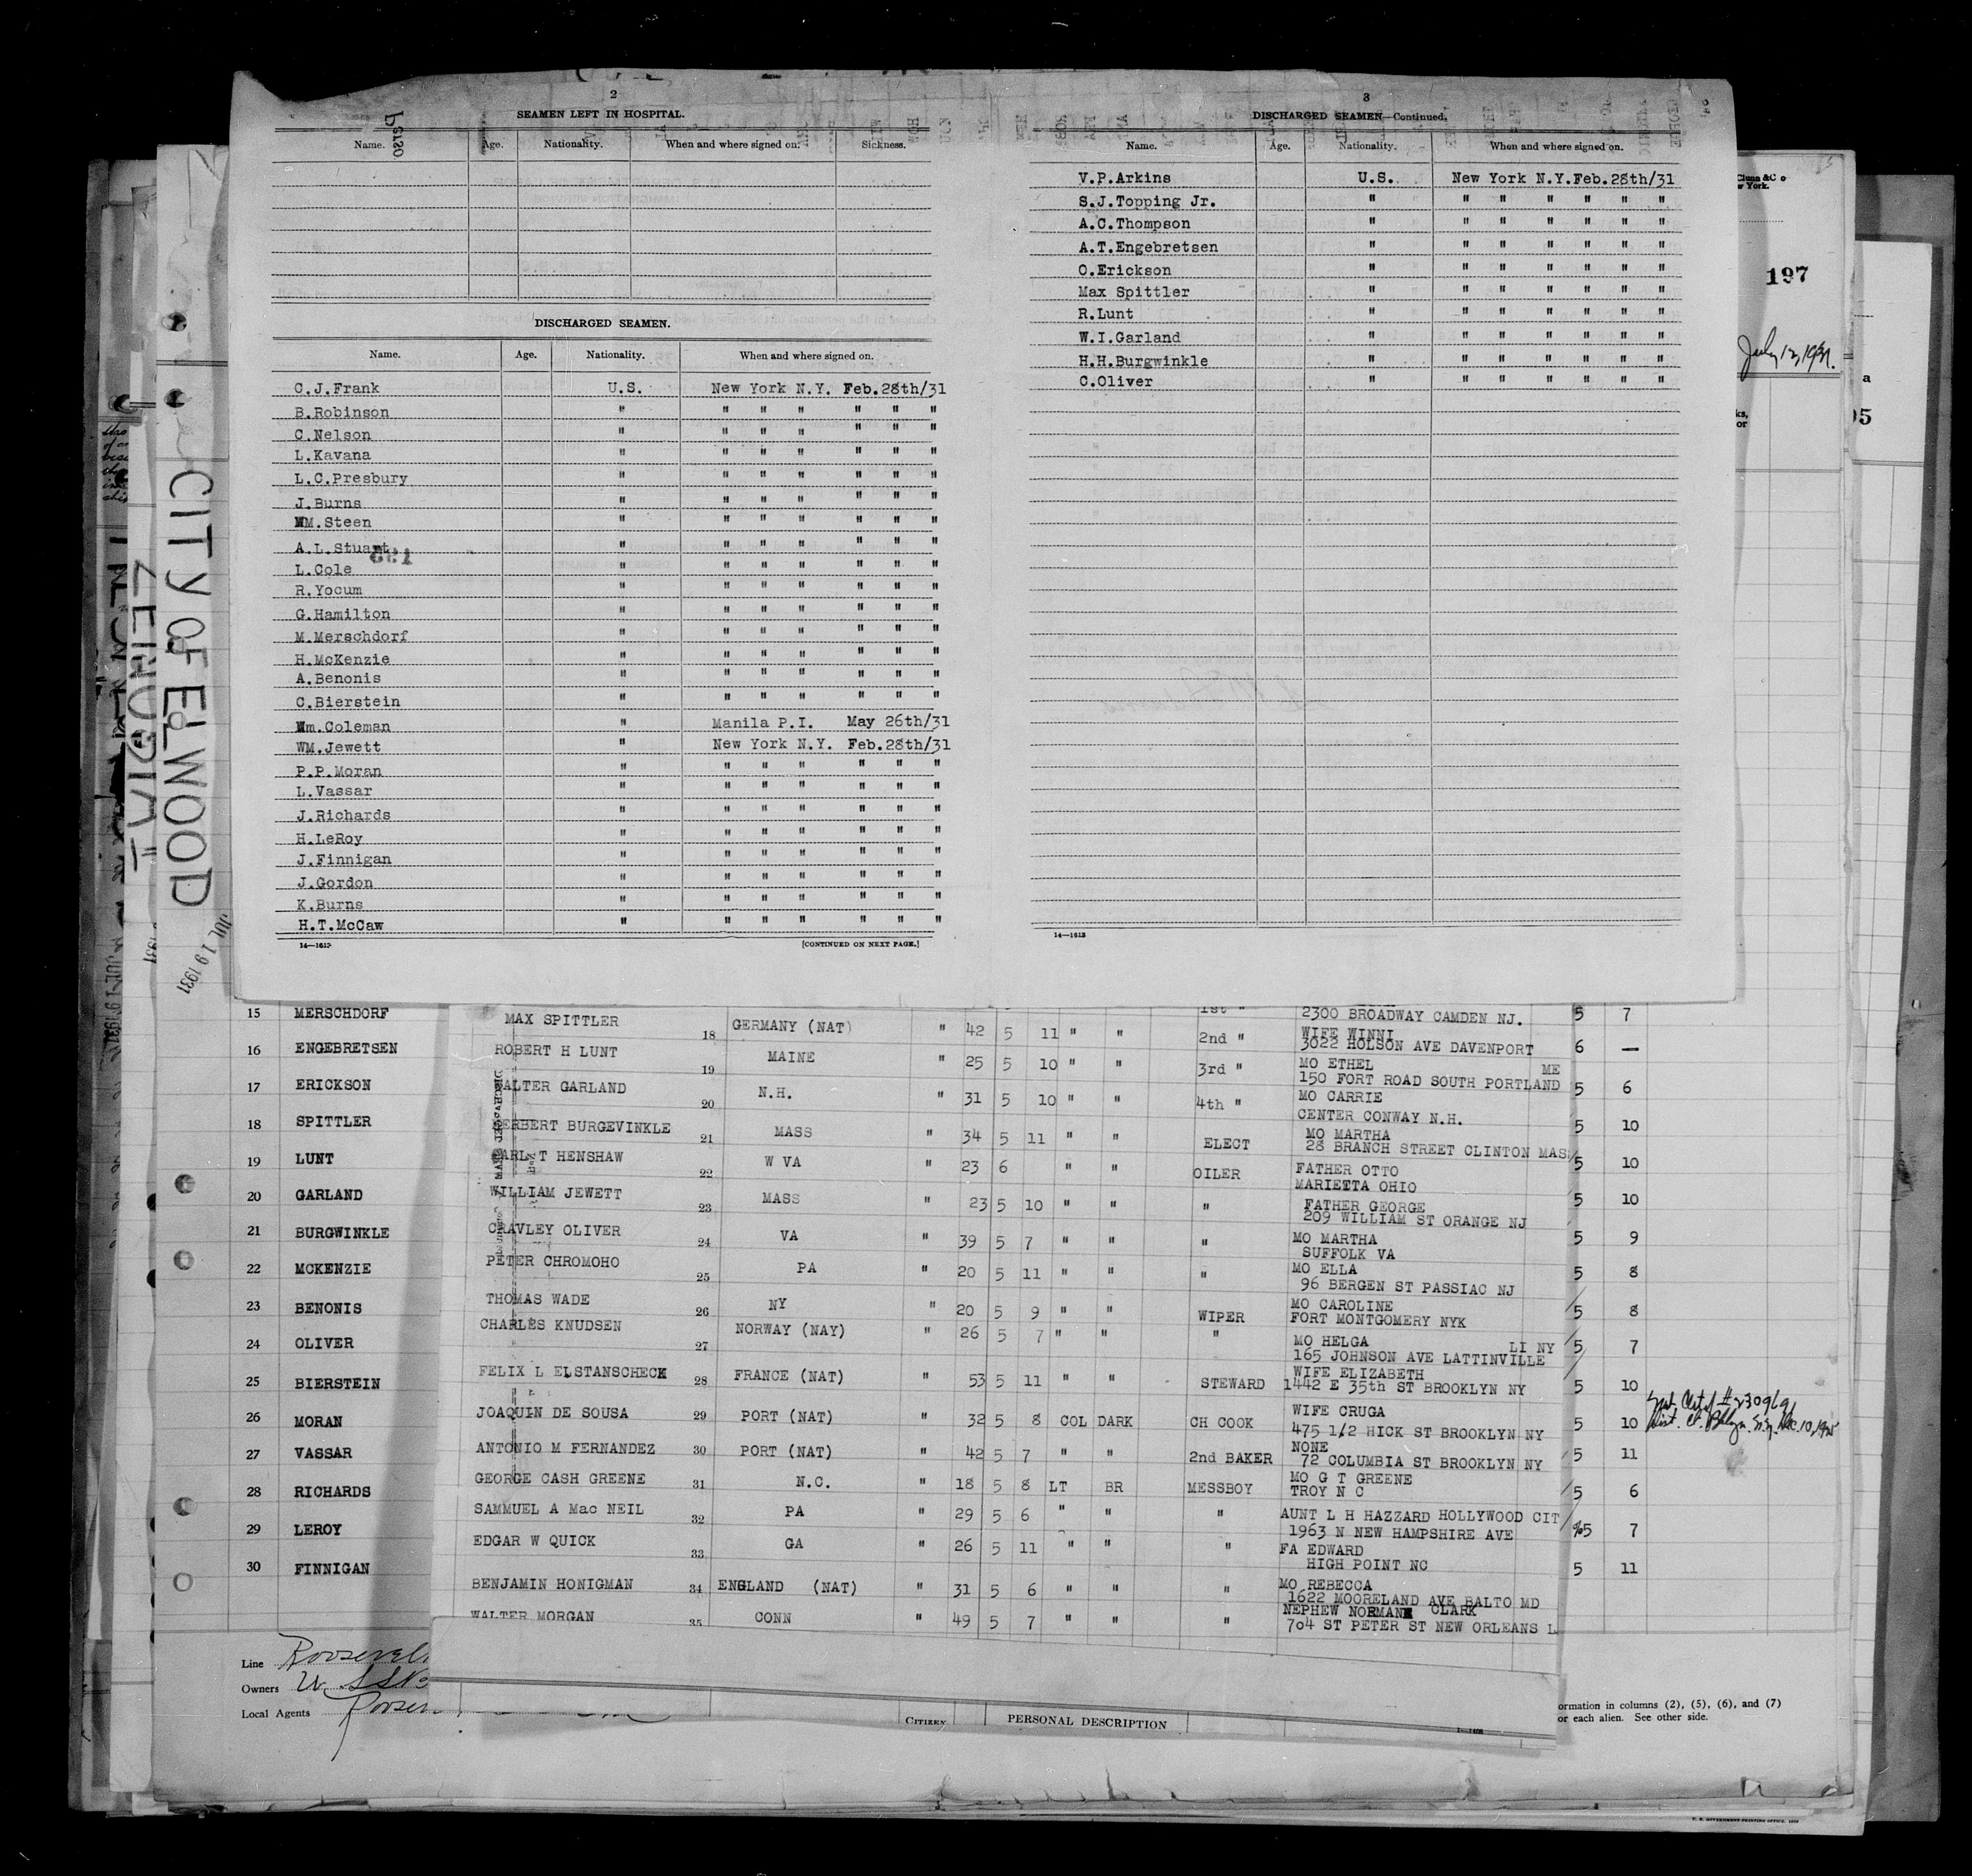 2
SEAMEN LEFT IN HOSPITAL.
Name. Age. Nationality. When and where signed on. Sickness.
DISCHARGED SEAMEN.
Name. Age. Nationality. When and where signed on.
C.J.Frank U.S. New York N.Y. Feb.28th/31
B.Robinson " " " " " " "
C.Nelson " " " " " " "
L.Kavana " " " " " " "
L.C.Presbury " " " " " " "
J.Burns " " " " " " "
WM.Steen " " " " " " "
A.L.Stuart " " " " " " "
L.Cole " " " " " " "
R.Yocum " " " " " " "
G.Hamilton " " " " " " "
M.Merschdorf " " " " " " "
H.McKenzie " " " " " " "
A.Benonis " " " " " " "
C.Bierstein " " " " " " "
Wm.Coleman " Manila P.I. May 26th/31
WM.Jewett " New York N.Y. Feb.28th/31
P.P.Moran " " " " " " "
L.Vassar " " " " " " "
J.Richards " " " " " " "
H.LeRoy " " " " " " "
J.Finnigan " " " " " " "
J.Gordon " " " " " " "
K.Burns " " " " " " "
H.T.McCaw " " " " " " "
14—1613 [CONTINUED ON NEXT PAGE.]
3
DISCHARGED SEAMEN—Continued.
Name. Age. Nationality. When and where signed on.
V.P.Arkins U.S. New York N.Y.Feb.28th/31
S.J.Topping Jr. " " " " " " "
A.C.Thompson " " " " " " "
A.T.Engebretsen " " " " " " "
O.Erickson " " " " " " "
Max Spittler " " " " " " "
R.Lunt " " " " " " "
W.I.Garland " " " " " " "
H.H.Burgwinkle " " " " " " "
C.Oliver " " " " " " "
14—1613
197
July 12, 1931.
CITY OF ELWOOD
JUL 19 1931
15 MERSCHDORF
16 ENGEBRETSEN
17 ERICKSON
18 SPITTLER
19 LUNT
20 GARLAND
21 BURGWINKLE
22 MCKENZIE
23 BENONIS
24 OLIVER
25 BIERSTEIN
26 MORAN
27 VASSAR
28 RICHARDS
29 LEROY
30 FINNIGAN
1st "
2300 BROADWAY CAMDEN NJ.
MAX SPITTLER 18 GERMANY (NAT) " 42 5 11 " " 2nd " WIFE WINNI
3022 HOLSON AVE DAVENPORT
ROBERT H LUNT 19 MAINE " 25 5 10 " " 3rd " MO ETHEL ME
150 FORT ROAD SOUTH PORTLAND
WALTER GARLAND 20 N.H. " 31 5 10 " " 4th " MO CARRIE
CENTER CONWAY N.H.
HERBERT BURGEVINKLE 21 MASS " 34 5 11 " " ELECT MO MARTHA
28 BRANCH STREET CLINTON MAS
T HENSHAW 22 W VA " 23 6 " " OILER FATHER OTTO
MARIETTA OHIO
WILLIAM JEWETT 23 MASS 23 5 10 " " " FATHER GEORGE
209 WILLIAM ST ORANGE NJ
CRAVLEY OLIVER 24 VA " 39 5 7 " " " MO MARTHA
SUFFOLK VA
PETER CHROMOHO 25 PA " 20 5 11 " " " MO ELLA
96 BERGEN ST PASSIAC NJ
THOMAS WADE 26 NY " 20 5 9 " " WIPER MO CAROLINE
FORT MONTGOMERY NYK
CHARLES KNUDSEN 27 NORWAY (NAY) " 26 5 7 " " " MO HELGA LI NY
165 JOHNSON AVE LATTINVILLE
FELIX L ELSTANSCHECK 28 FRANCE (NAT) " 53 5 11 " " STEWARD WIFE ELIZABETH
1442 E 35th ST BROOKLYN NY
JOAQUIN DE SOUSA 29 PORT (NAT) " 32 5 8 COL DARK CH COOK WIFE CRUGA
475 1/2 HICK ST BROOKLYN NY
ANTONIO M FERNANDEZ 30 PORT (NAT) " 42 5 7 " " 2nd BAKER NONE
72 COLUMBIA ST BROOKLYN NY
GEORGE CASH GREENE 31 N.C. " 18 5 8 LT BR MESSBOY MO G T GREENE
TROY N C
SAMMUEL A Mac NEIL 32 PA " 29 5 6 " " " AUNT L H HAZZARD HOLLYWOOD CIT
1963 N NEW HAMPSHIRE AVE
EDGAR W QUICK 33 GA " 26 5 11 " " " FA EDWARD
HIGH POINT NC
BENJAMIN HONIGMAN 34 ENGLAND (NAT) " 31 5 6 " " " MO REBECCA
1622 MOORELAND AVE BALTO MD
WALTER MORGAN 35 CONN " 49 5 7 " " " NEPHEW NORMAN CLARK
704 ST PETER ST NEW ORLEANS L
5 7
6 —
5 6
5 10
5 10
5 10
5 9
5 8
5 8
5 7
5 10
5 10
5 11
5 6
5 7
5 11
Line
Owners
Local Agents
CITIZEN PERSONAL DESCRIPTION
ormation in columns (2), (5), (6), and (7)
or each alien. See other side.
U. S. GOVERNMENT PRINTING OFFICE